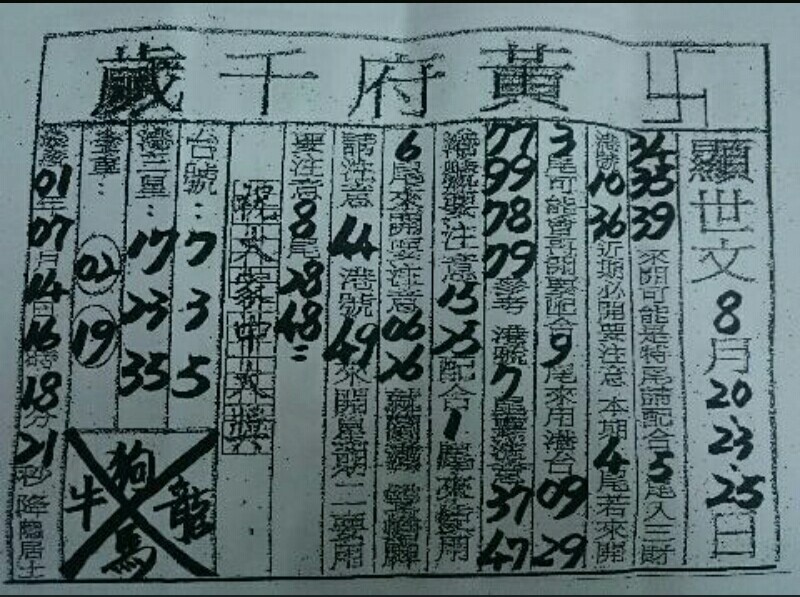 卐黃府千歲
顯世文8月20.23.25日
34 35 39來開可能是特尾師配合5尾入三財
港號10 36近期必開要注意本期4尾若來開
3尾可能會再開要配合9尾來用港台09 29
77 99 78 79參考港號7尾要注意37 47
港號要注意15 25配合1尾來使用
6尾來開要注意06 26
請注意44港號49來開星期二要用
要注意8尾28 48=
祝大家中大獎
台號:7 3 5
港二星:17 23 35
02 19
狗
牛 龍
馬
01年07月14日16時18分21秒降臨居士